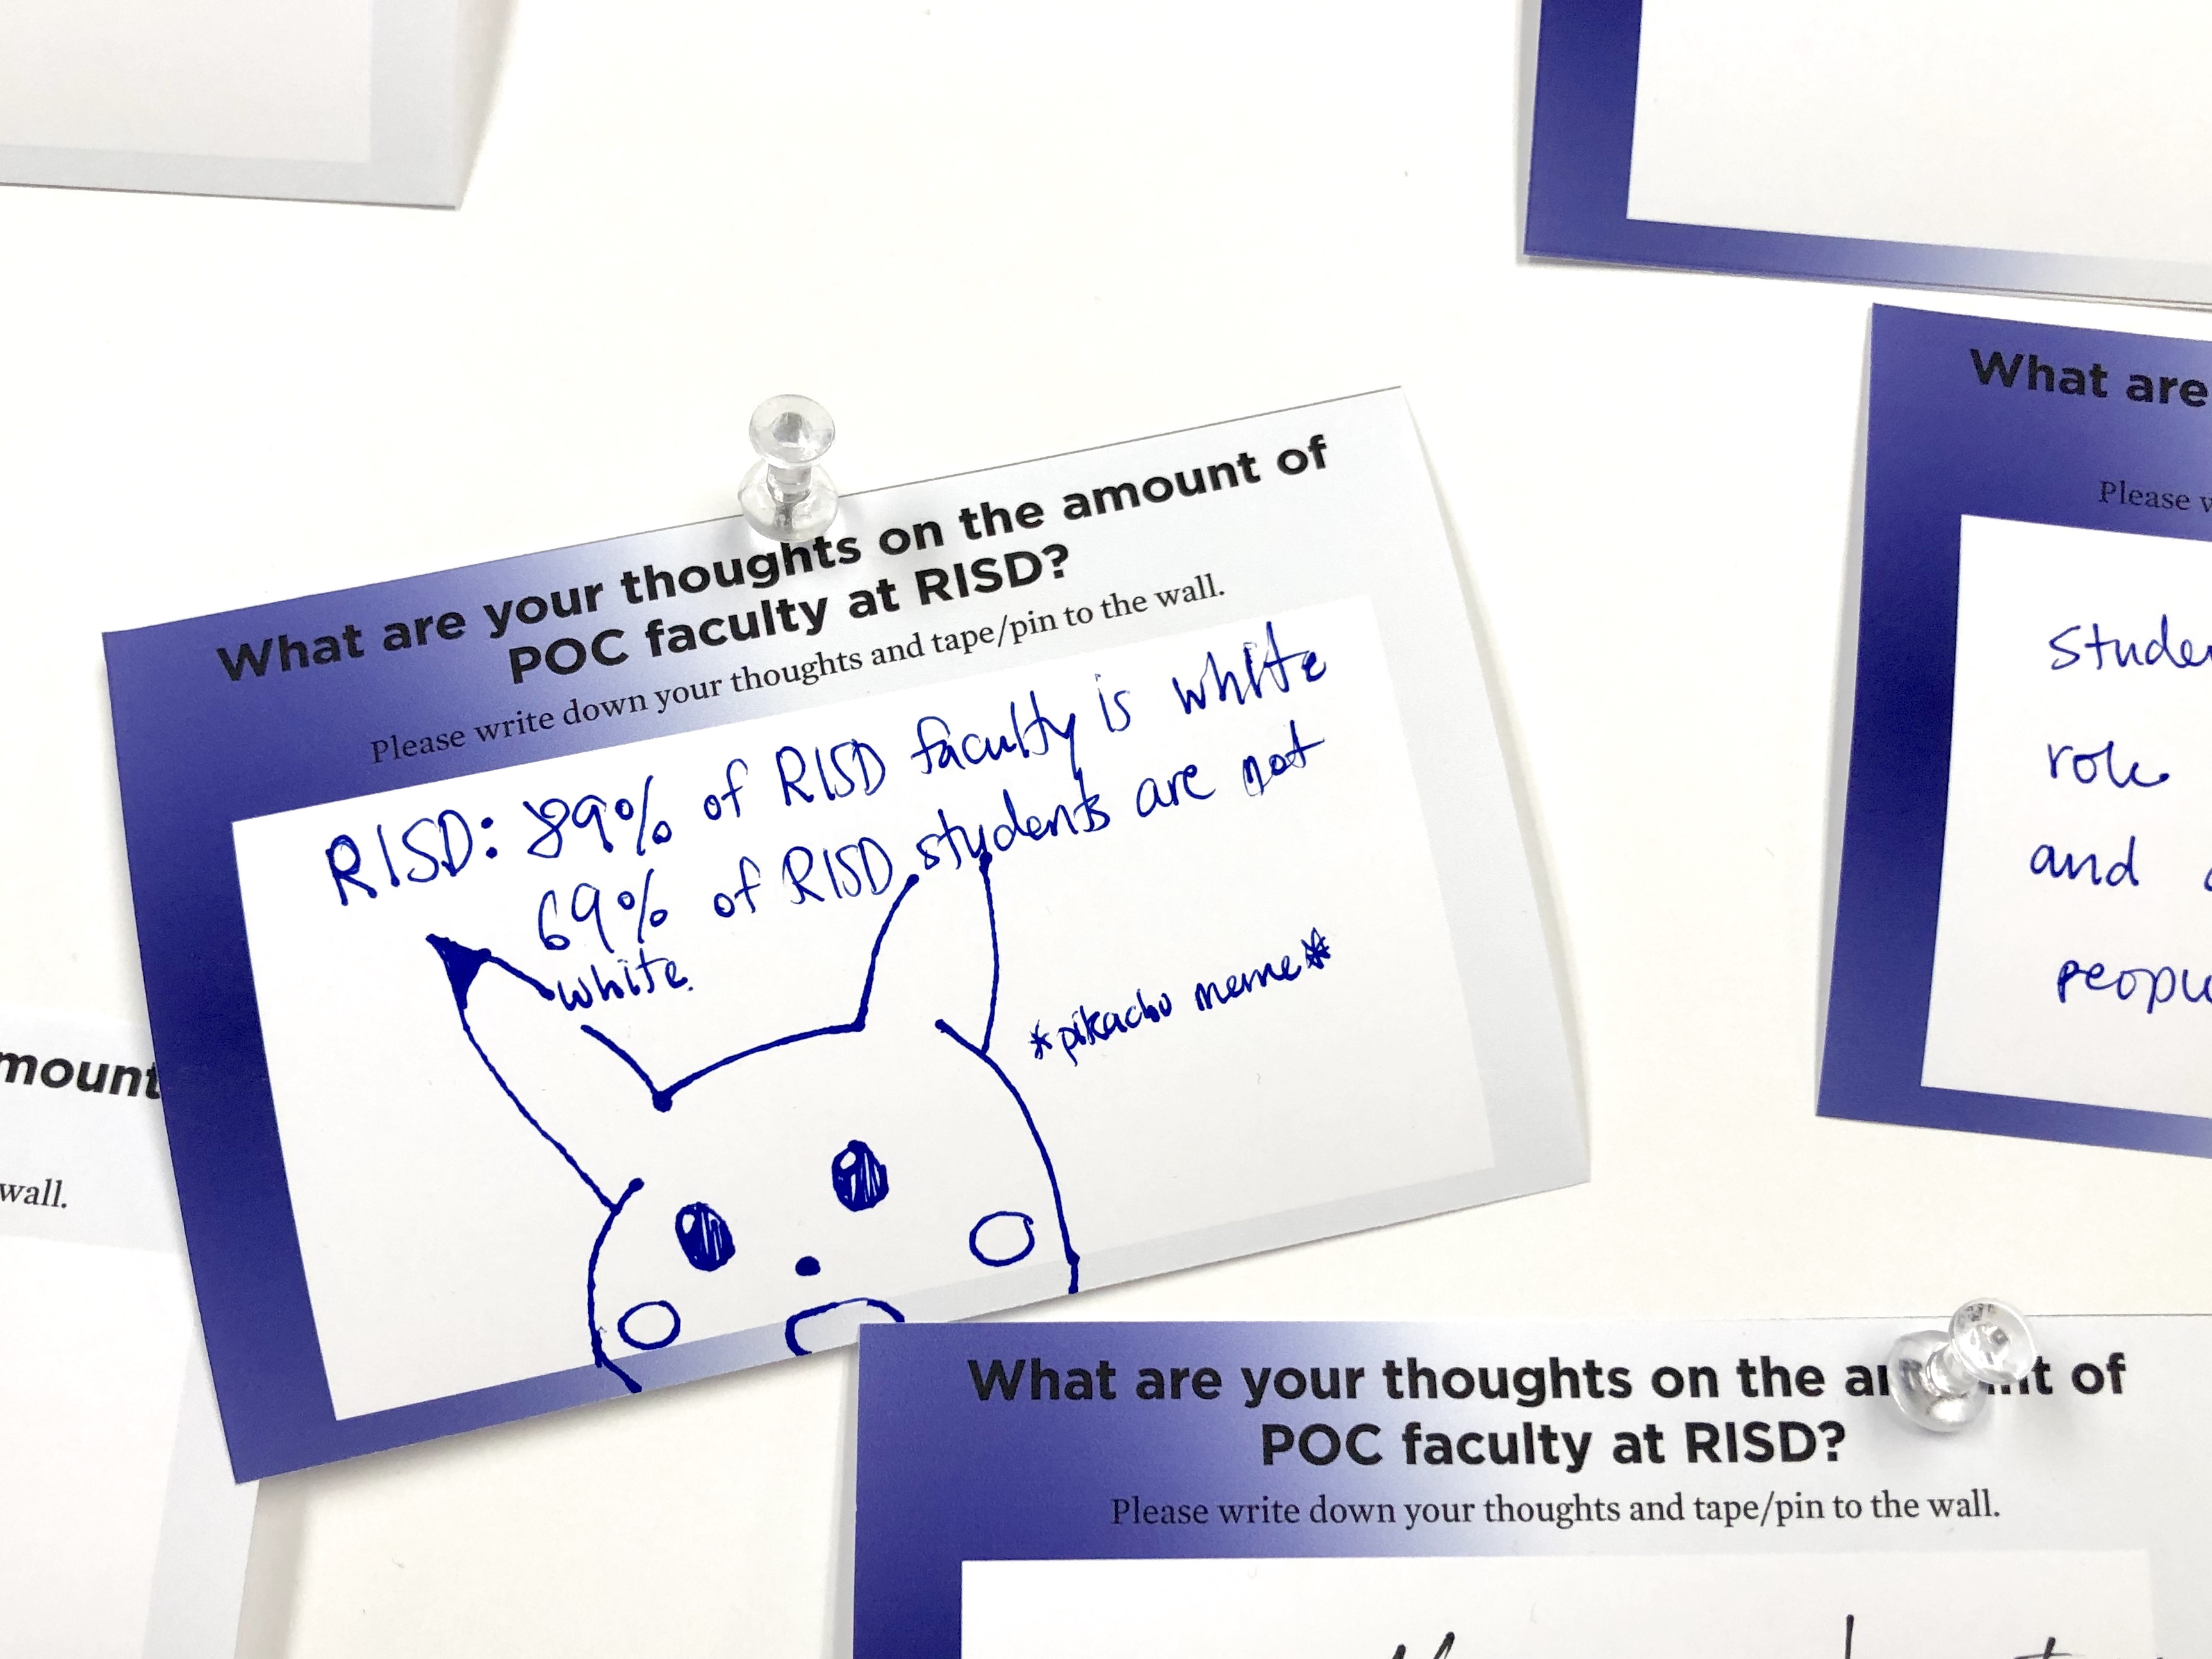 What are your thoughts on the amount of
POC faculty at RISD?
Please write down your thoughts and tape/pin to the wall.
RISD: 89% of RISD faculty is white
69% of RISD students are not
white.
*pikachu meme*
What are
Please
role
and
mount
wall.
What are your thoughts on the of
POC faculty at RISD?
Please write down your thoughts and tape/pin to the wall.